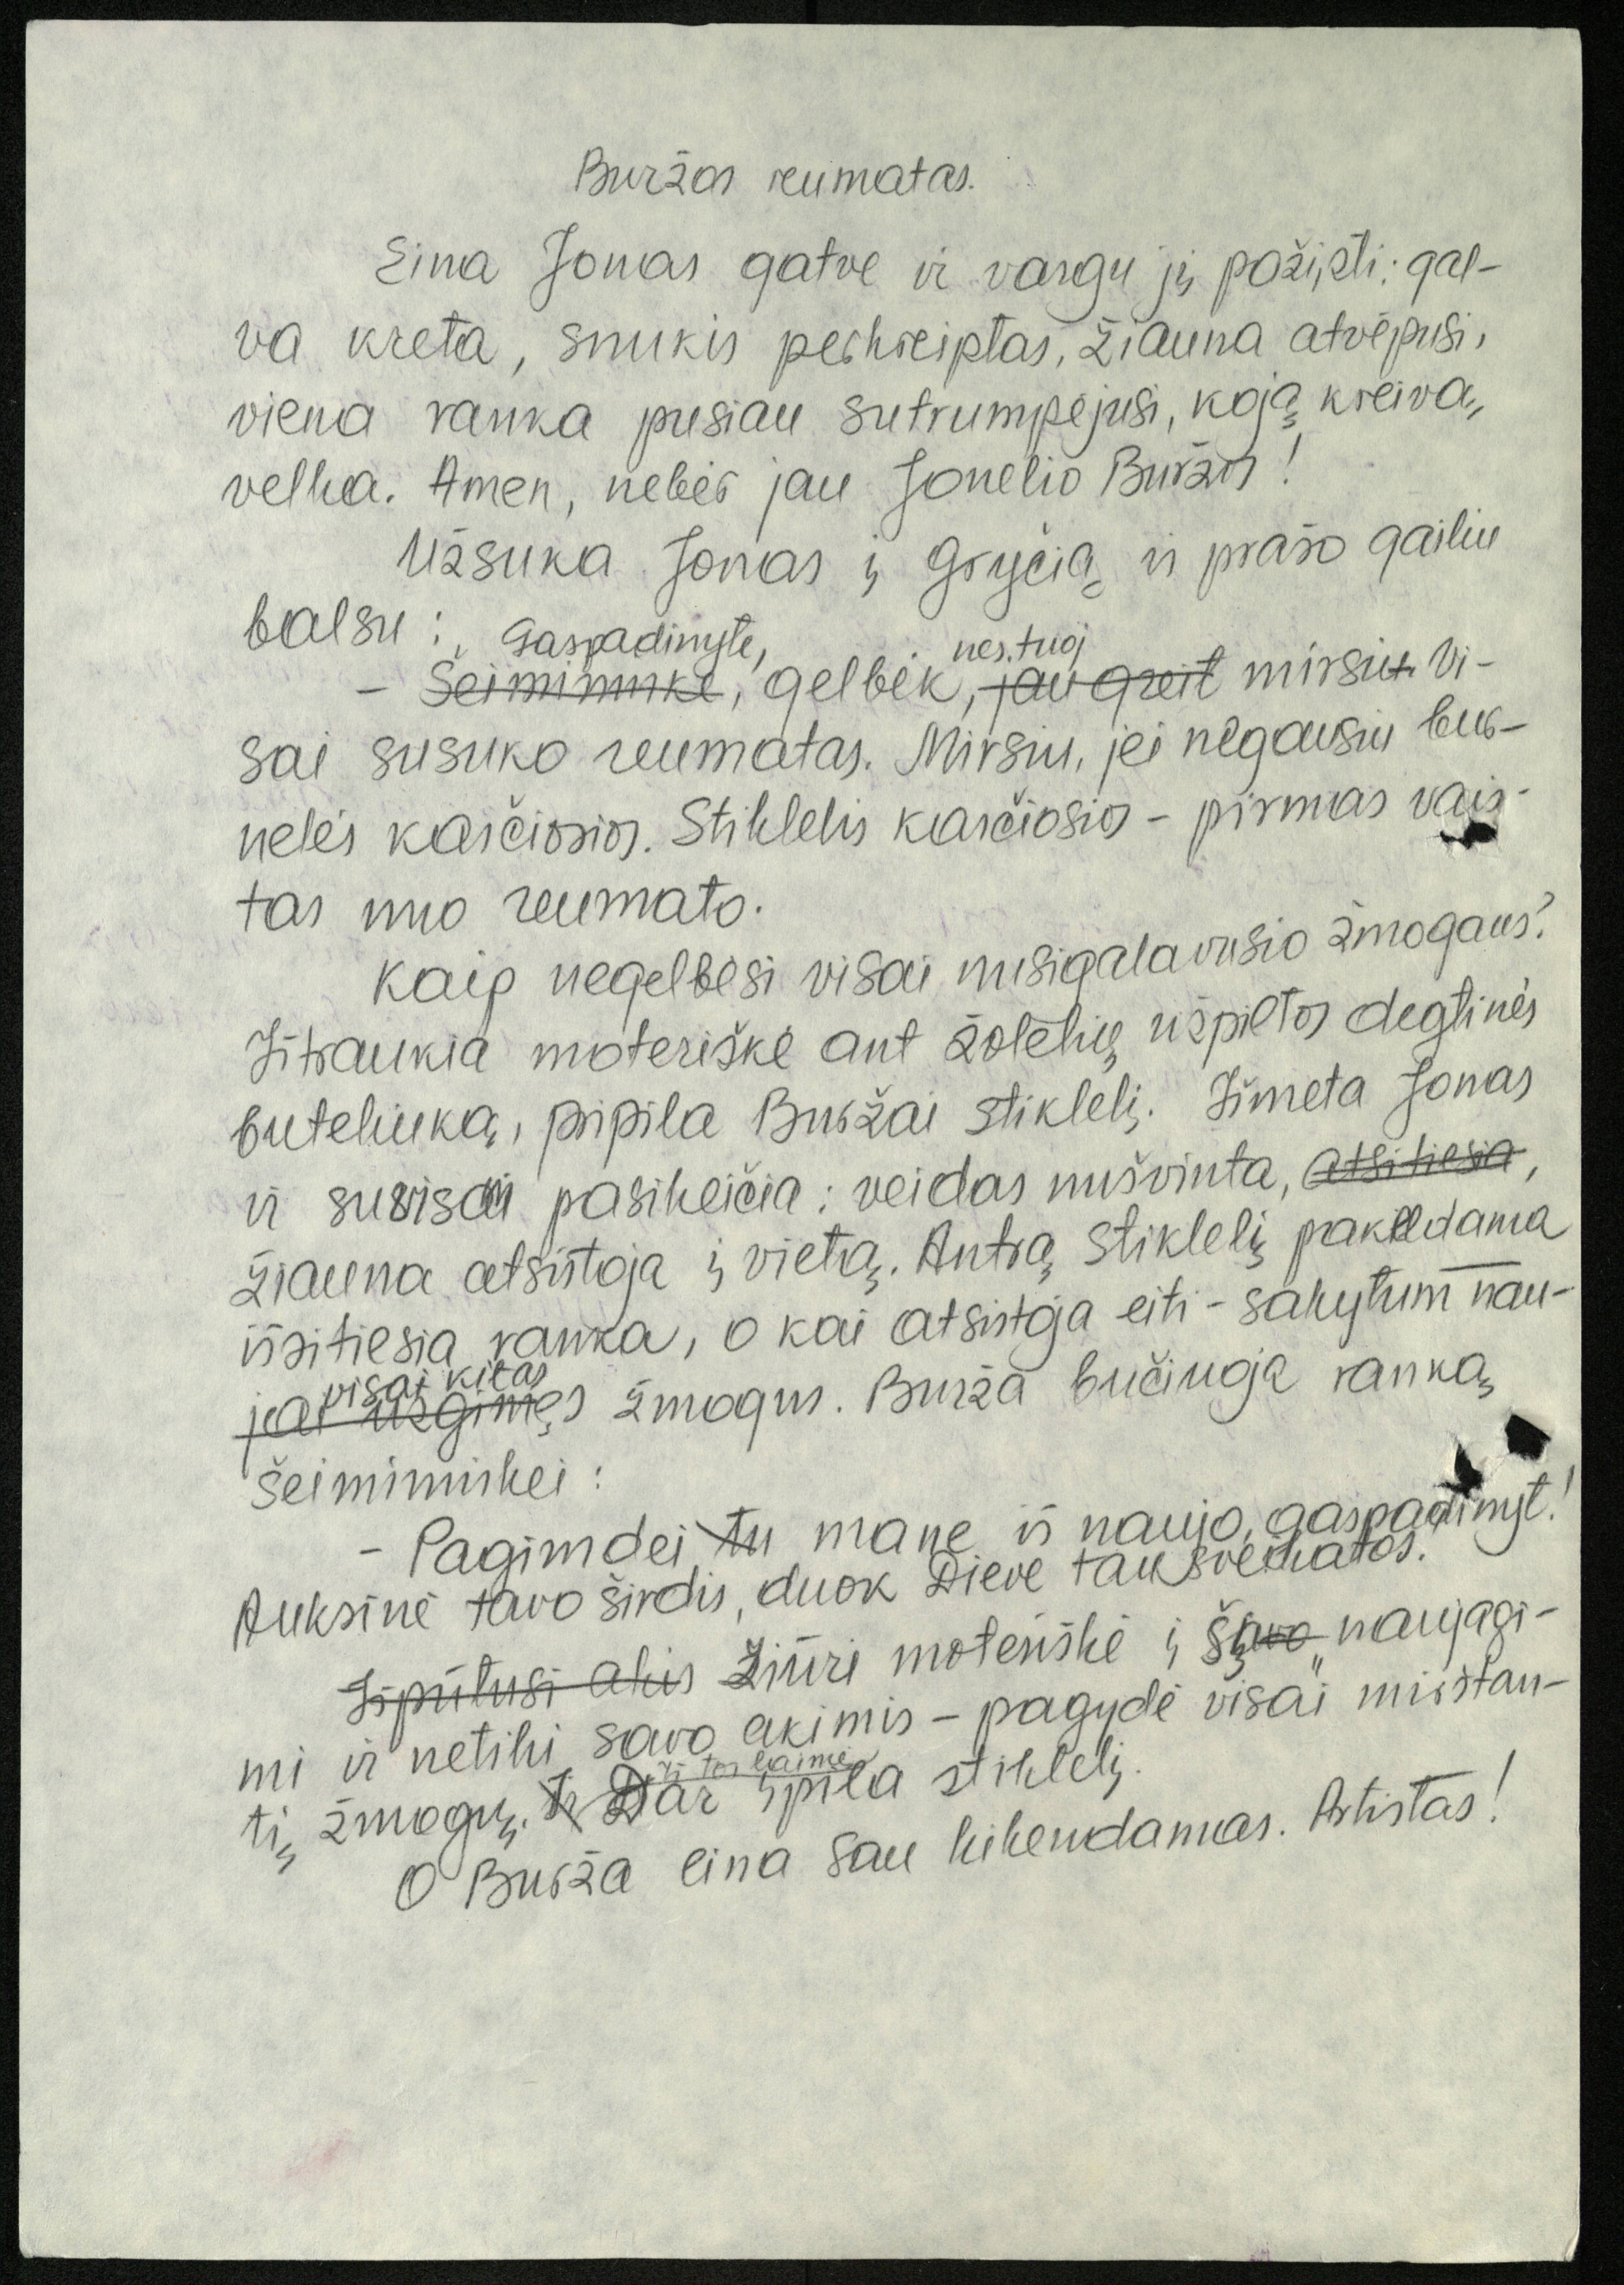 Buržos reumatas.
Eina Jonas gatve ir vargu jį pažįsti: gal-
va kreta, snukis perkreiptas, žiauna atvėpusi,
viena ranka pusiau sutrumpėjusi, koją kreivą,
velka. Amen, nebėr jau Jonelio Buržos!
Užsuka Jonas į gryčią ir prašo gailiu
balsu:
Gaspadinyte, nes tuoj
- Šeimininke, gelbėk, jau greit mirsiu. Vi-
sai susuko reumatas. Mirsiu, jei negausiu bur-
nelės karčiosios. Stiklelis karčiosios - pirmas vais-
tas nuo reumato.
Kaip negelbėsi visai nusigalavusio žmogaus?
Ištraukia moteriškė ant žolelių užpiltos degtinės
buteliuką, pripila Buržai stiklelį. Išmeta Jonas
ir suvisai pasikeičia: veidas nušvinta, atsitiesia,
žiauna atsistoja į vietą. Antrą stiklelį pakeldama
išsitiesia ranka, o kai atsistoja eiti - sakytum nau-
visai kitas
jai užgimęs žmogus. Burža bučiuoja ranką
šeimininkei:
- Pagimdei tu mane iš naujo, gaspadinyt!
Auksinė tavo širdis, duok Dieve tau sveikatos.
Išpūtusi akis Žiūri moteriškė į šį savo "naujagi-
mį ir netiki savo akimis - pagydė visai mirštan-
iš tos laimės
tį žmogų. Ir Dar įpila stiklelį.
O Burža eina sau kikendamas. Artistas!